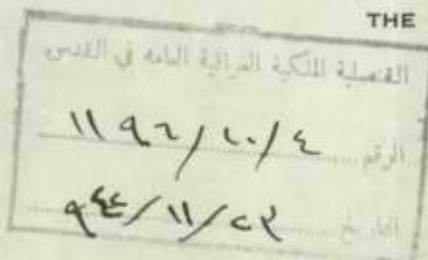 THE
القنصلية الملكية العراقية العامة في القدس
الرقم ٤/١٠/١١٩٦
التاريخ ٢٣/١١/٩٤٤